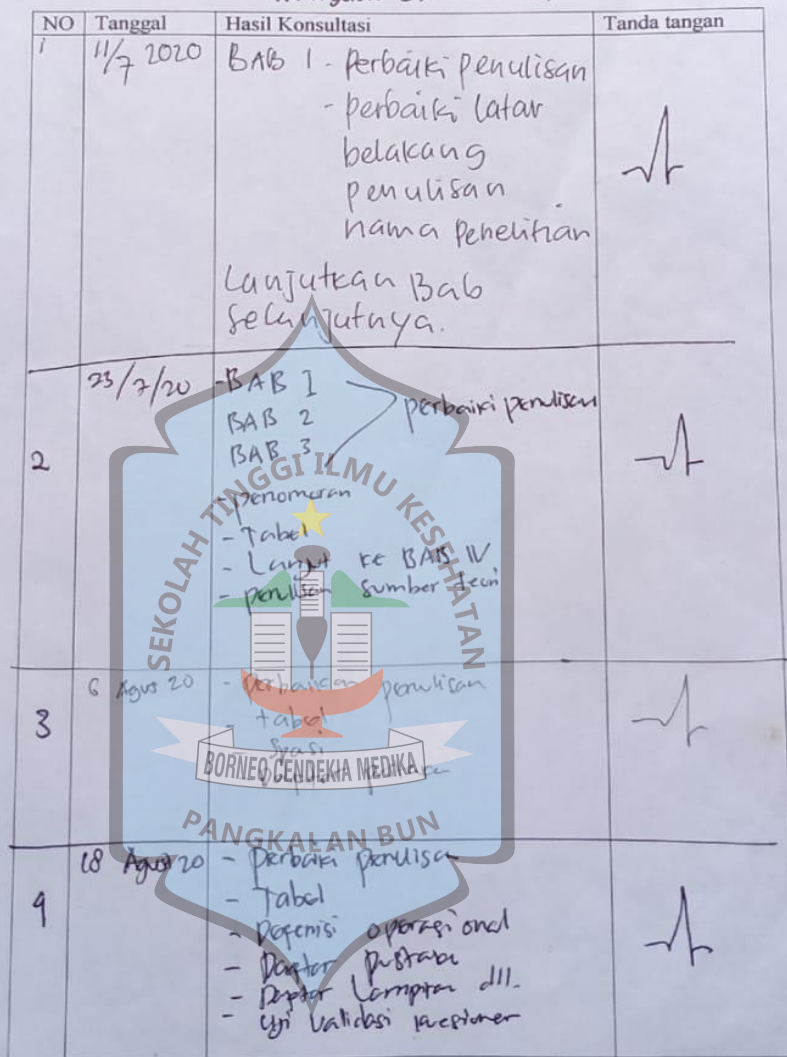 NO Tanggal Hasil Konsultasi Tanda tangan
1 11/7 2020 BAB 1 - Perbaiki penulisan
- perbaiki latar
belakang
penulisan
nama Penelitian
Lanjutkan Bab
selanjutnya.
2 23/7/20 - BAB I perbaiki penulisan
BAB 2
BAB 3
- penomoran
- Tabel
- Lanjut ke BAB IV
- penulisan sumber teori
3 6 Agus 20 - Perbaikan penulisan
- tabel
- Spasi
4 18 Agus 20 - Perbaiki penulisan
- Tabel
- Defenisi operasional
- Daftar pustaka
- Daftar Lampiran dll.
- Uji validasi kuesioner
SEKOLAH TINGGI ILMU KESEHATAN
BORNEO CENDEKIA MEDIKA
PANGKALAN BUN